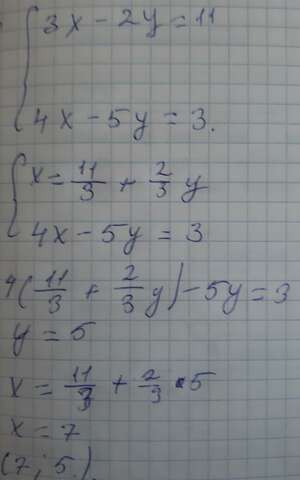 3x - 2y = 11
4x - 5y = 3.
x = 11/3 + 2/3 y
4x - 5y = 3
4(11/3 + 2/3 y) - 5y = 3
y = 5
x = 11/3 + 2/3 • 5
x = 7
(7; 5).